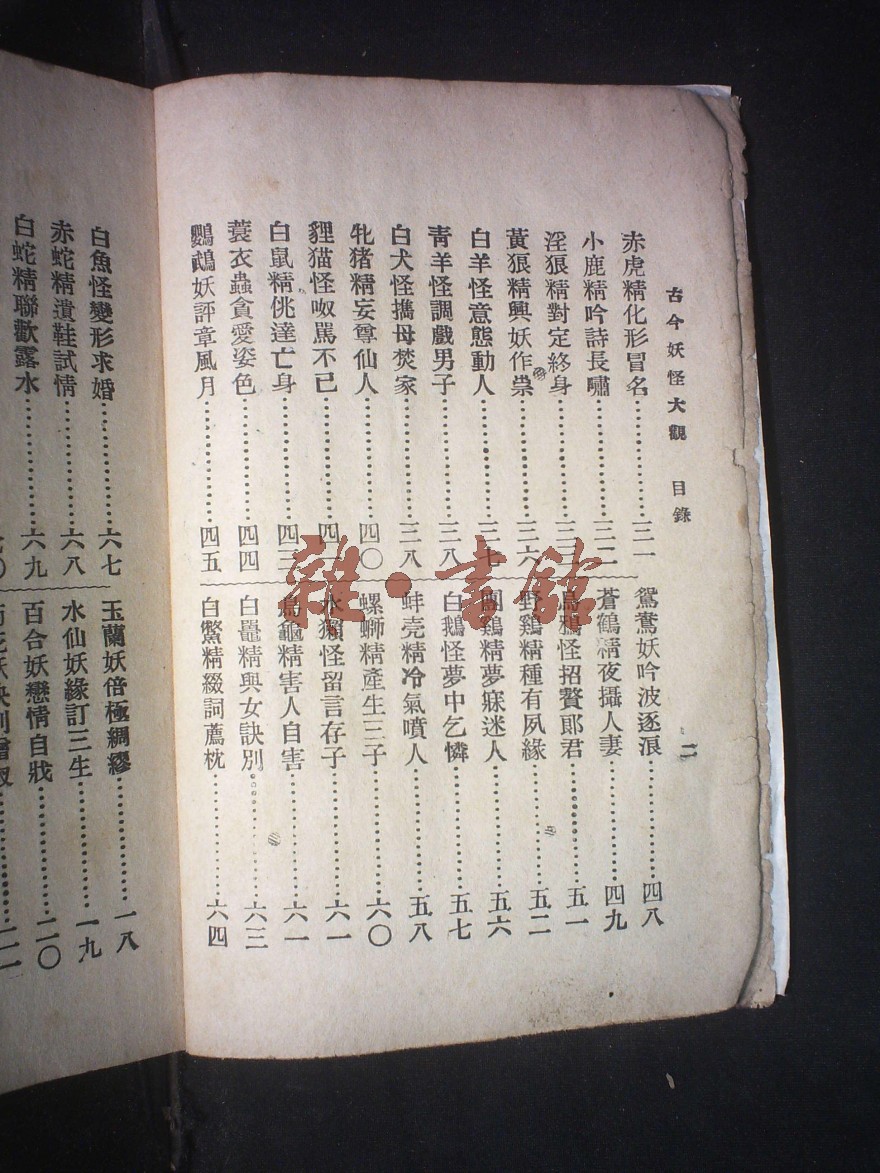 古今妖怪大觀 目錄 二
赤虎精化形冒名 三一
小鹿精吟詩長嘯 三二
淫狼精對定終身 三三
黃狼精興妖作祟 三六
白羊怪意態動人 三七
青羊怪調戲男子 三八
白犬怪攜母焚家 三八
牝猪精妄尊仙人 四〇
貍猫怪呶罵不已
白鼠精佻達亡身 四三
蓑衣蟲貪愛姿色 四四
鸚鵡妖評章風月 四五
鴛鴦妖吟波逐浪 四八
蒼鶴精夜攝人妻 四九
烏鴉怪招贅郎君 五一
野鷄精種有夙緣 五二
團鷄精夢寐迷人 五六
白鵝怪夢中乞憐 五七
蚌壳精冷氣噴人 五八
螺螄精產生三子 六〇
水獺怪留言存子 六一
烏龜精害人自害 六一
白鼉精興女訣別 六三
白鱉精綴詞薦枕 六四
白魚怪變形求婚 六七
赤蛇精遺鞋試情 六八
白蛇精聯歡露水 六九
玉蘭妖倍極綢繆 一八
水仙妖緣訂三生 一九
百合妖戀情自戕 二〇
雜·書館